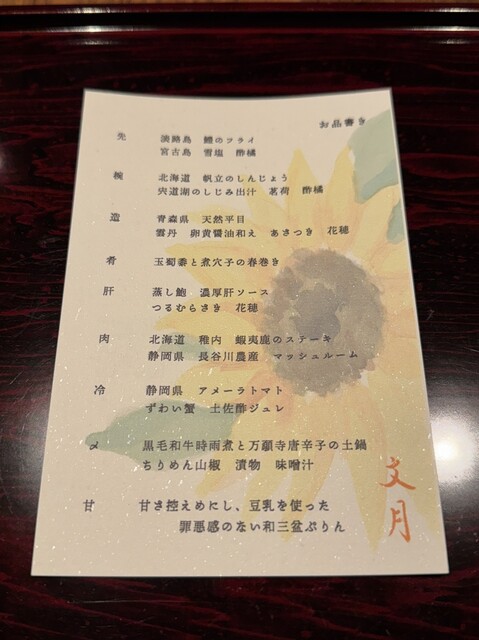 お品書き
先 淡路島 鱧のフライ
宮古島 雪塩 酢橘
椀 北海道 帆立のしんじょう
宍道湖のしじみ出汁 茗荷 酢橘
造 青森県 天然平目
雲丹 卵黄醤油和え あさつき 花穂
肴 玉蜀黍と煮穴子の春巻き
肝 蒸し鮑 濃厚肝ソース
つるむらさき 花穂
肉 北海道 稚内 蝦夷鹿のステーキ
静岡県 長谷川農産 マッシュルーム
冷 静岡県 アメーラトマト
ずわい蟹 土佐酢ジュレ
〆 黒毛和牛時雨煮と万願寺唐辛子の土鍋
ちりめん山椒 漬物 味噌汁
甘 甘さ控えめにし、豆乳を使った
罪悪感のない和三盆ぷりん
文月